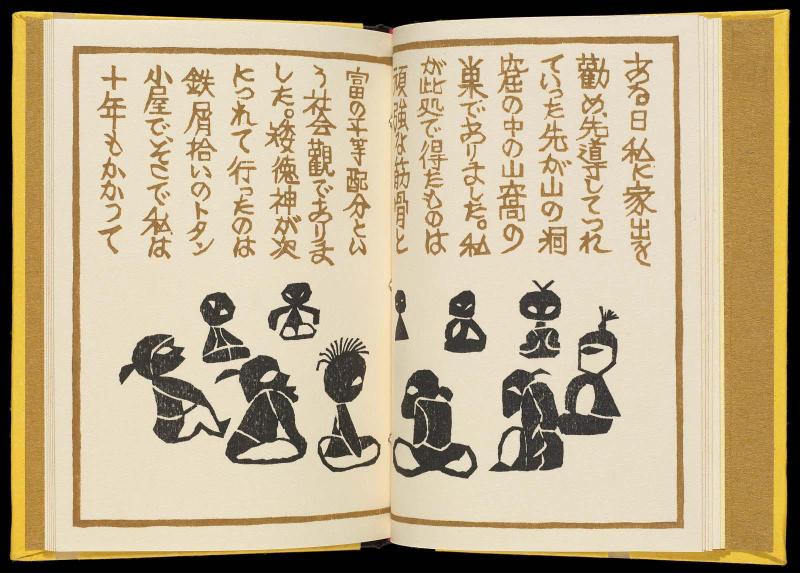 ある日私に家出を
勸め、先導してつれ
ていった先が山の洞
窟の中の山窩の
巣でありました。私
が此処で得たものは
頑強な筋骨と
富の平等配分とい
う社会觀でありま
した。矮傀神が次
につれて行ったのは
鉄屑拾いのトタン
小屋で、そこで私は
十年もかかって